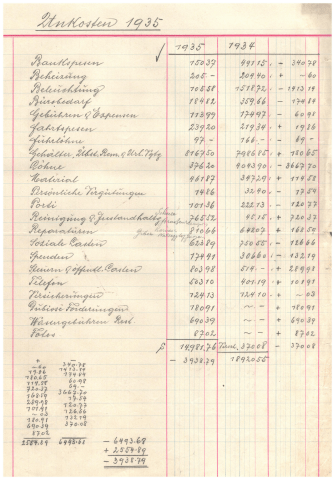 Unkosten 1935
1935 1934
Bankspesen 150.37 491.15 - 340.78
Beheizung 205.- 209.40 + -.60
Beleuchtung 105.58 1518.72 - 1413.14
Bürobedarf 184.82 359.66 - 174.84
Gebühren & Expensen 113.99 174.97 - 60.98
Fahrtspesen 239.20 219.34 + 19.86
Fuhrlöhne 97.- 166.- - 69.-
Löhne 376.20 4043.90 - 3667.70
Material 461.87 347.29 + 114.58
Persönliche Vergütungen 14.86 32.40 - 17.54
Porti 101.36 222.13 - 120.77
Reinigung & Instandhaltg. 765.52 45.15 + 720.37
Reparaturen 810.66 642.07 + 168.59
Soziale Lasten 623.89 750.55 - 126.66
Spenden 174.41 306.60 - 132.19
Steuern & öffentl. Lasten 803.98 514.- + 289.98
Telefon 503.10 401.19 + 101.91
Versicherungen 124.13 124.10 + -.03
Dubiose Forderungen 180.91 -.- + 180.91
690.39 -.- + 690.39
87.02 -.- + 87.02
14.981.76 370.08 - 370.08
- 3938.79 18920.55
+ -
-.60 340.78
19.86 1413.14
180.65 174.84
114.58 60.98
720.37 69.-
168.59 3667.70
289.98 17.54
101.91 120.77
-.03 126.66
180.91 132.19
690.39 370.08
87.02
2554.89 6493.68 - 6493.68
+ 2554.89
- 3938.79